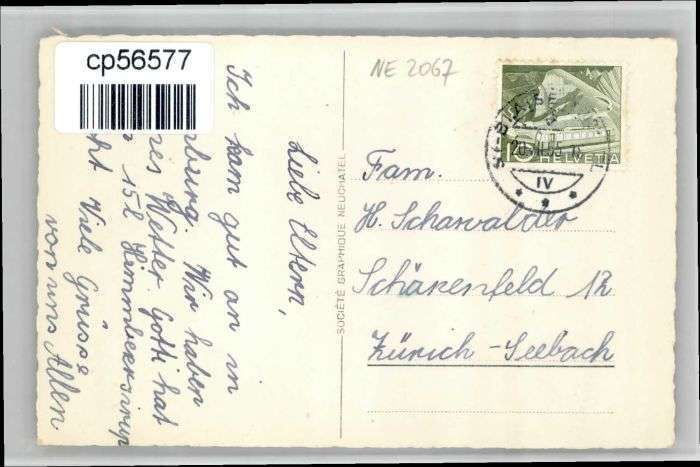 cp56577
NE 2067
Liebe Eltern,
Ich kam gut an in
burg. Wir haben
res Wetter. Gotti hat
15l Himmbeersirup
ht Viele Grüsse
von uns Allen
SOCIÉTÉ GRAPHIQUE NEUCHATEL
ST-BLAISE
IV
10 HELVETIA
Fam.
H. Scharwalder
Schärenfeld 12
Zürich-Seebach